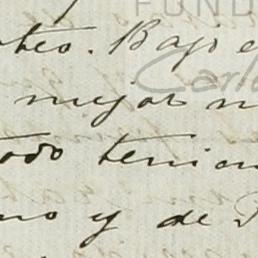 FUND
oteo. Bajo e
Carlo
mejor n
odo tenien
no y de